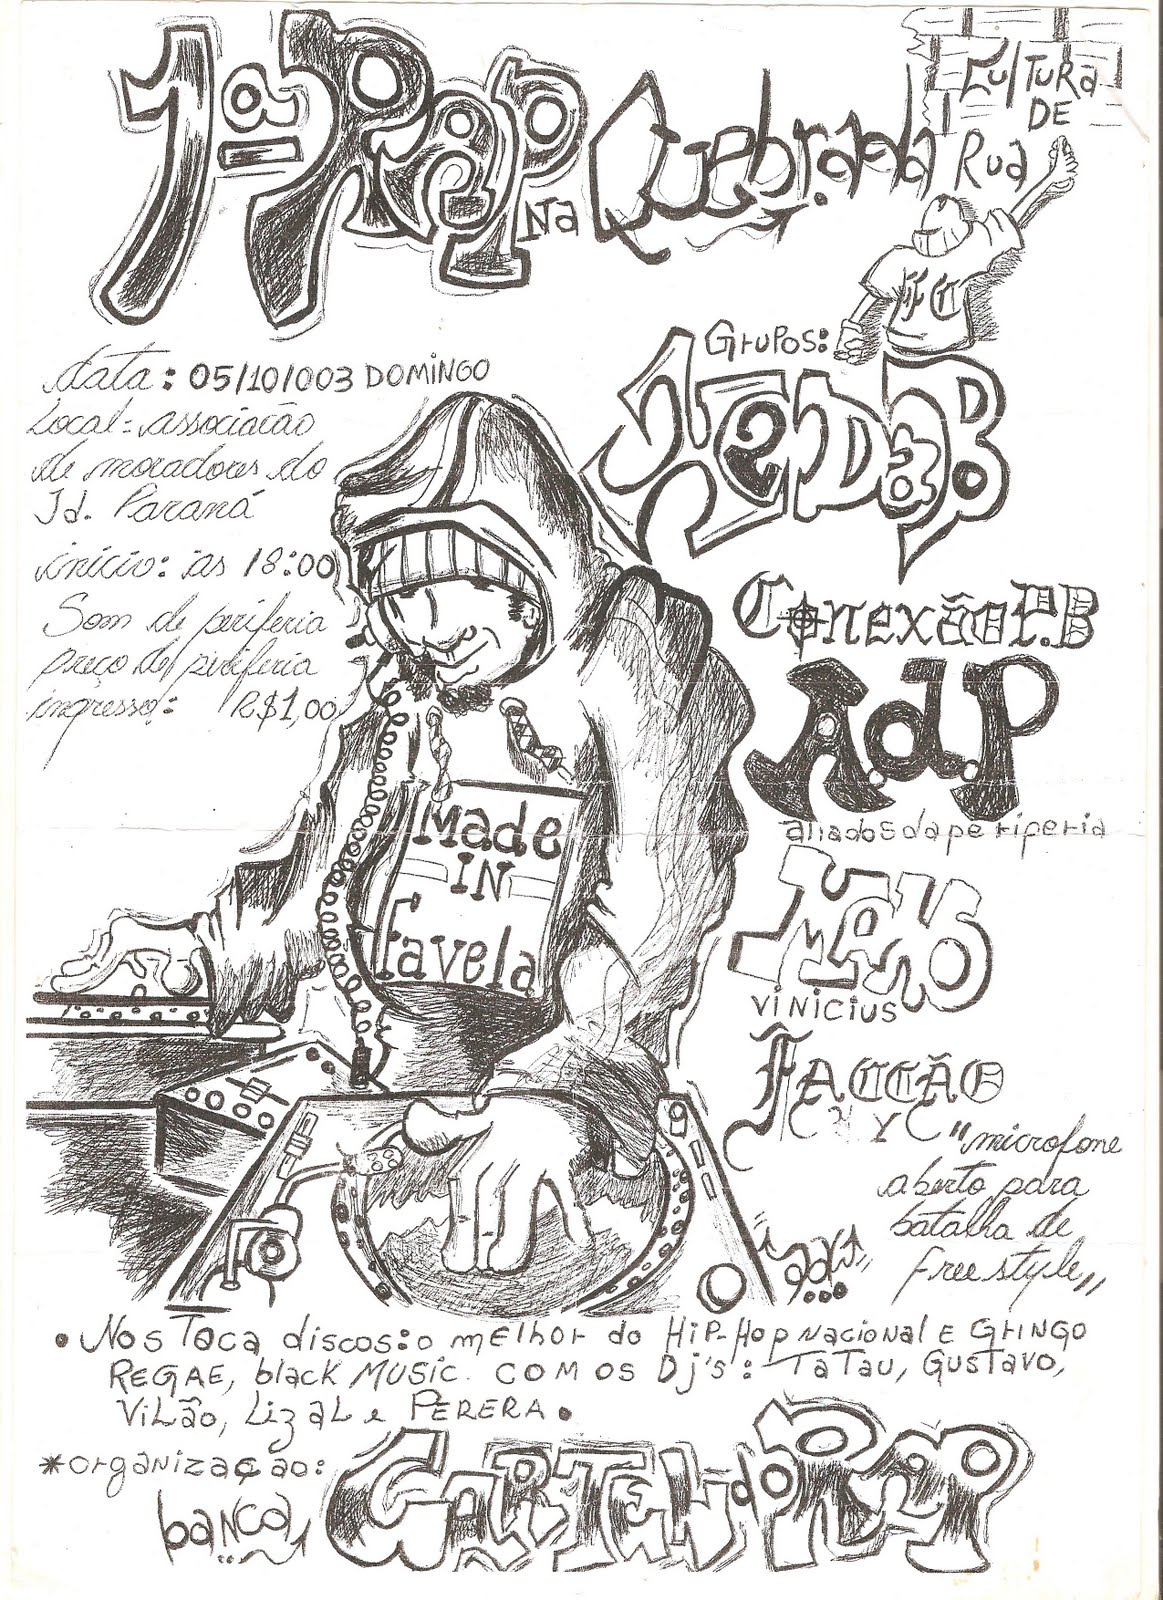 1ª Rap na Quebrada
Cultura
DE
Rua
data: 05/10/003 DOMINGO
Local: associacão
de moradores do
Jd. Paraná
início: as 18:00
Som de periferia
preço de piriferia
ingresso: R$1,00
Grupos:
Conexão P.B
A.d.P
aliados da periferia
Vinicius
FACCÃO
"microfone
aberto para
batalha de
free style"
Made
IN
favela
• Nos Toca discos: o melhor do Hip-Hop Nacional E Gringo
REGAE, black MUSIC. COM OS Dj's: TaTau, Gustavo,
ViLão, LizaL e PERERA •
*organização:
banca CARTEL do Rap